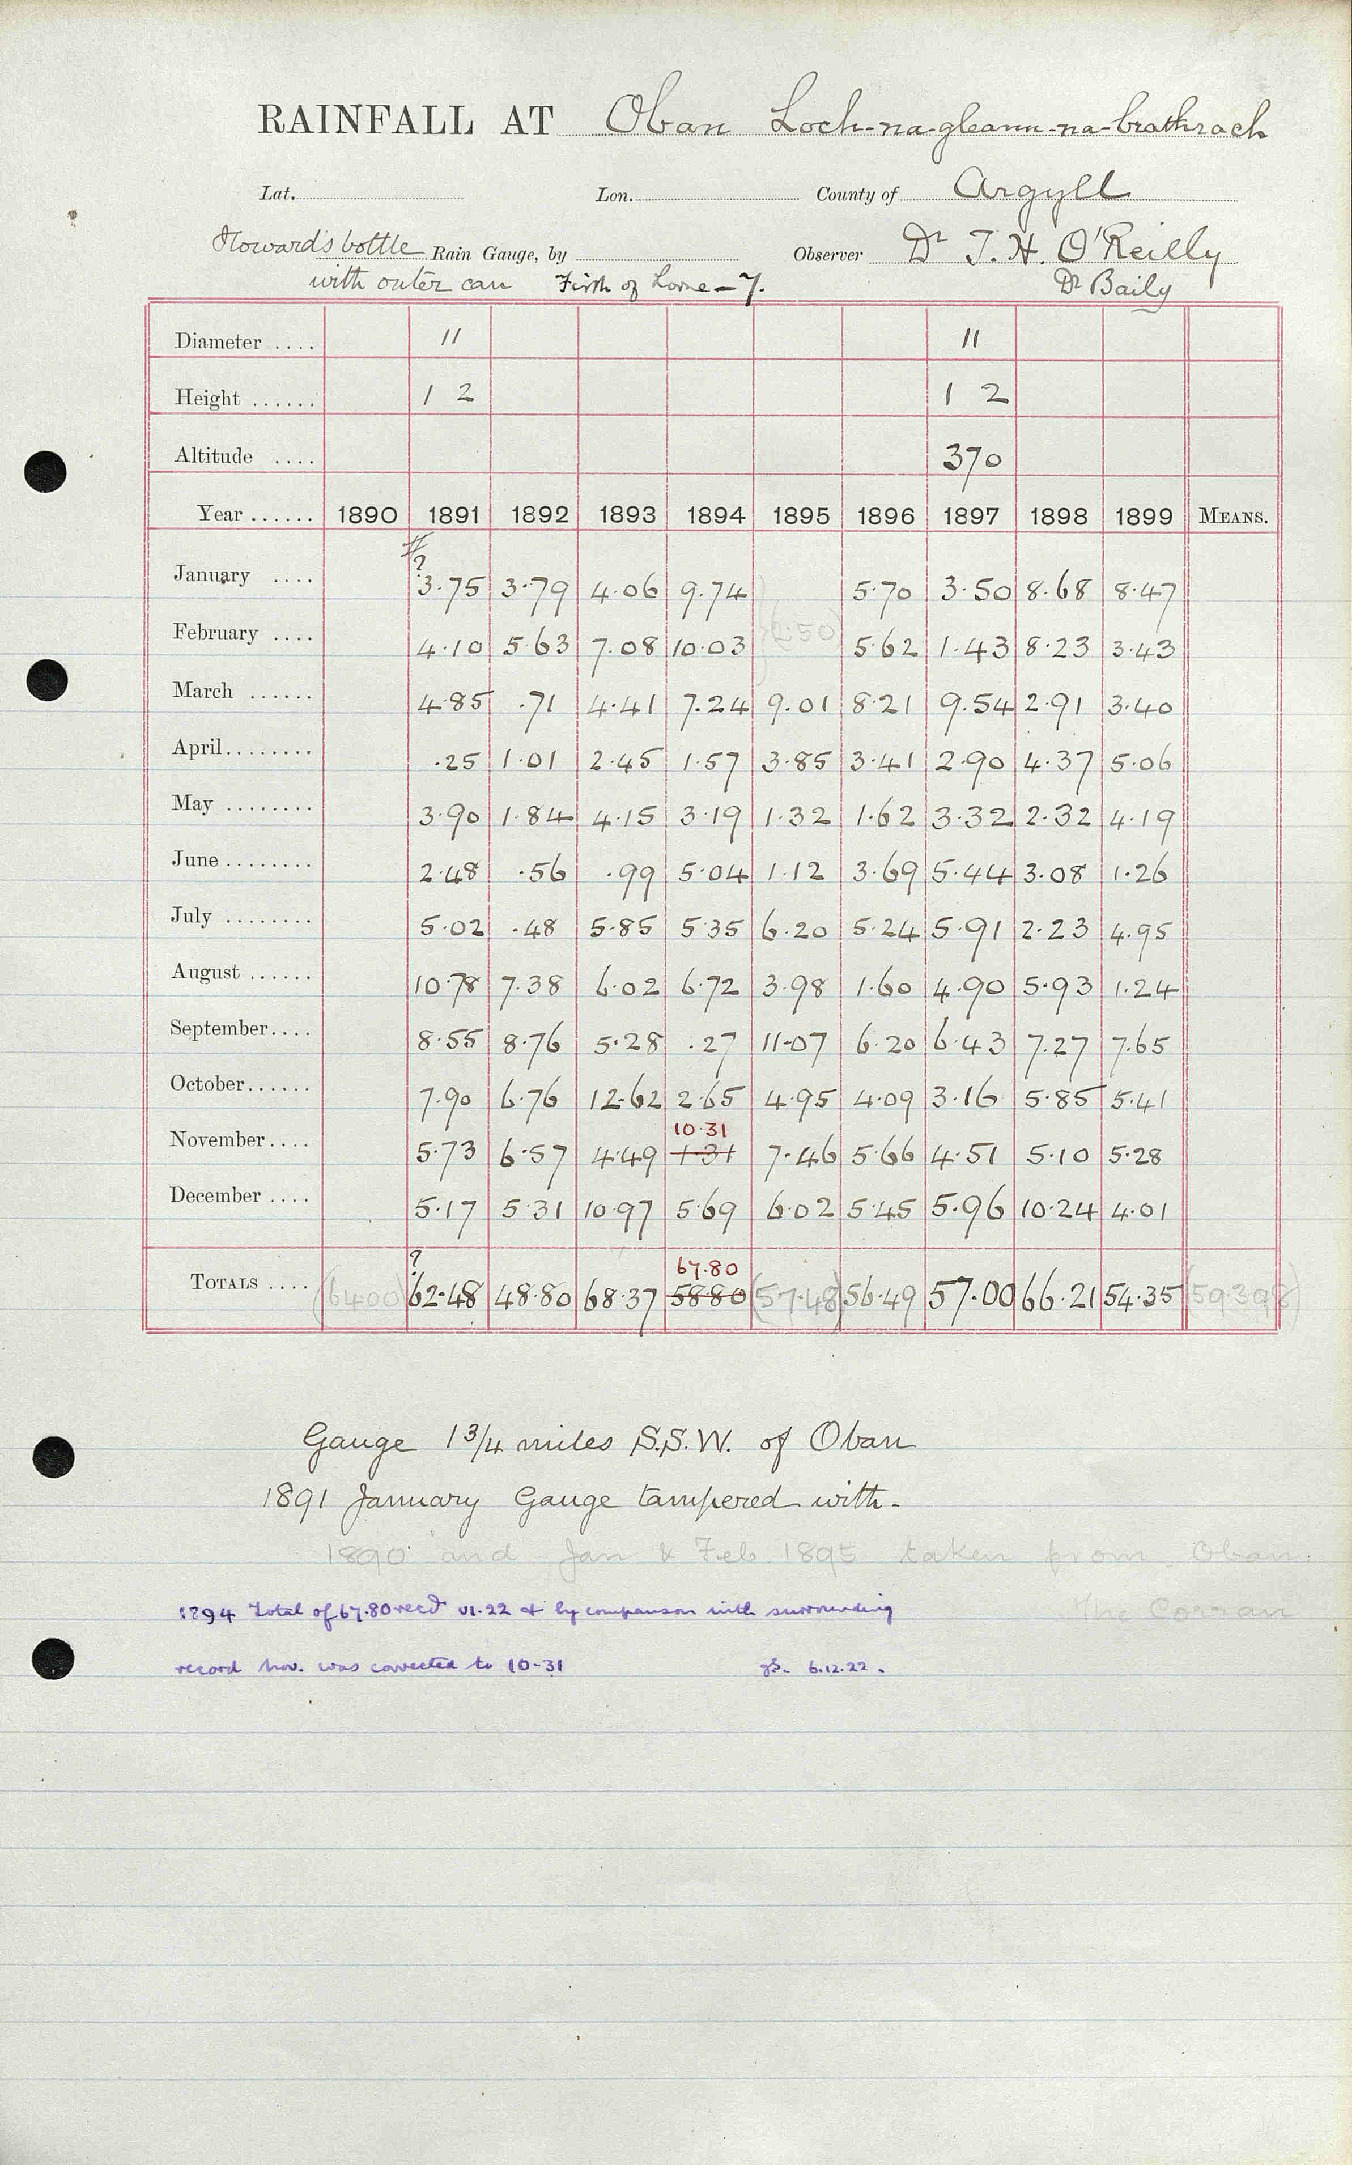 RAINFALL AT Oban Loch-na-gleann-na-brathrach
Lat. Lon. County of Argyll
Howard's bottle Rain Gauge, by Observer Dr T. H. O'Reilly
with outer can Firth of Lorne - 7. Dr Baily
Diameter .... 11 11
Height ...... 1 2 1 2
Altitude .... 370
Year ...... 1890 1891 1892 1893 1894 1895 1896 1897 1898 1899 MEANS.
?
January .... 3.75 3.79 4.06 9.74 5.70 3.50 8.68 8.47
February .... 4.10 5.63 7.08 10.03 (2.50) 5.62 1.43 8.23 3.43
March ...... 4.85 .71 4.41 7.24 9.01 8.21 9.54 2.91 3.40
April........ .25 1.01 2.45 1.57 3.85 3.41 2.90 4.37 5.06
May ........ 3.90 1.84 4.15 3.19 1.32 1.62 3.32 2.32 4.19
June ........ 2.48 .56 .99 5.04 1.12 3.69 5.44 3.08 1.26
July ........ 5.02 .48 5.85 5.35 6.20 5.24 5.91 2.23 4.95
August ...... 10.78 7.38 6.02 6.72 3.98 1.60 4.90 5.93 1.24
September.... 8.55 8.76 5.28 .27 11.07 6.20 6.43 7.27 7.65
October...... 7.90 6.76 12.62 2.65 4.95 4.09 3.16 5.85 5.41
10.31
November.... 5.73 6.57 4.49 1.31 7.46 5.66 4.51 5.10 5.28
December .... 5.17 5.31 10.97 5.69 6.02 5.45 5.96 10.24 4.01
? 67.80
TOTALS .... (64.00) 62.48 48.80 68.37 58.80 (57.48) 56.49 57.00 66.21 54.35 (59.398)
Gauge 1 3/4 miles S.S.W. of Oban
1891 January Gauge tampered with.
1890 and Jan & Feb. 1895 taken from Oban.
The Corran
1894 Total of 67.80 recd VI.22 & by comparison with surrounding
record Nov. was corrected to 10.31 6.12.22.